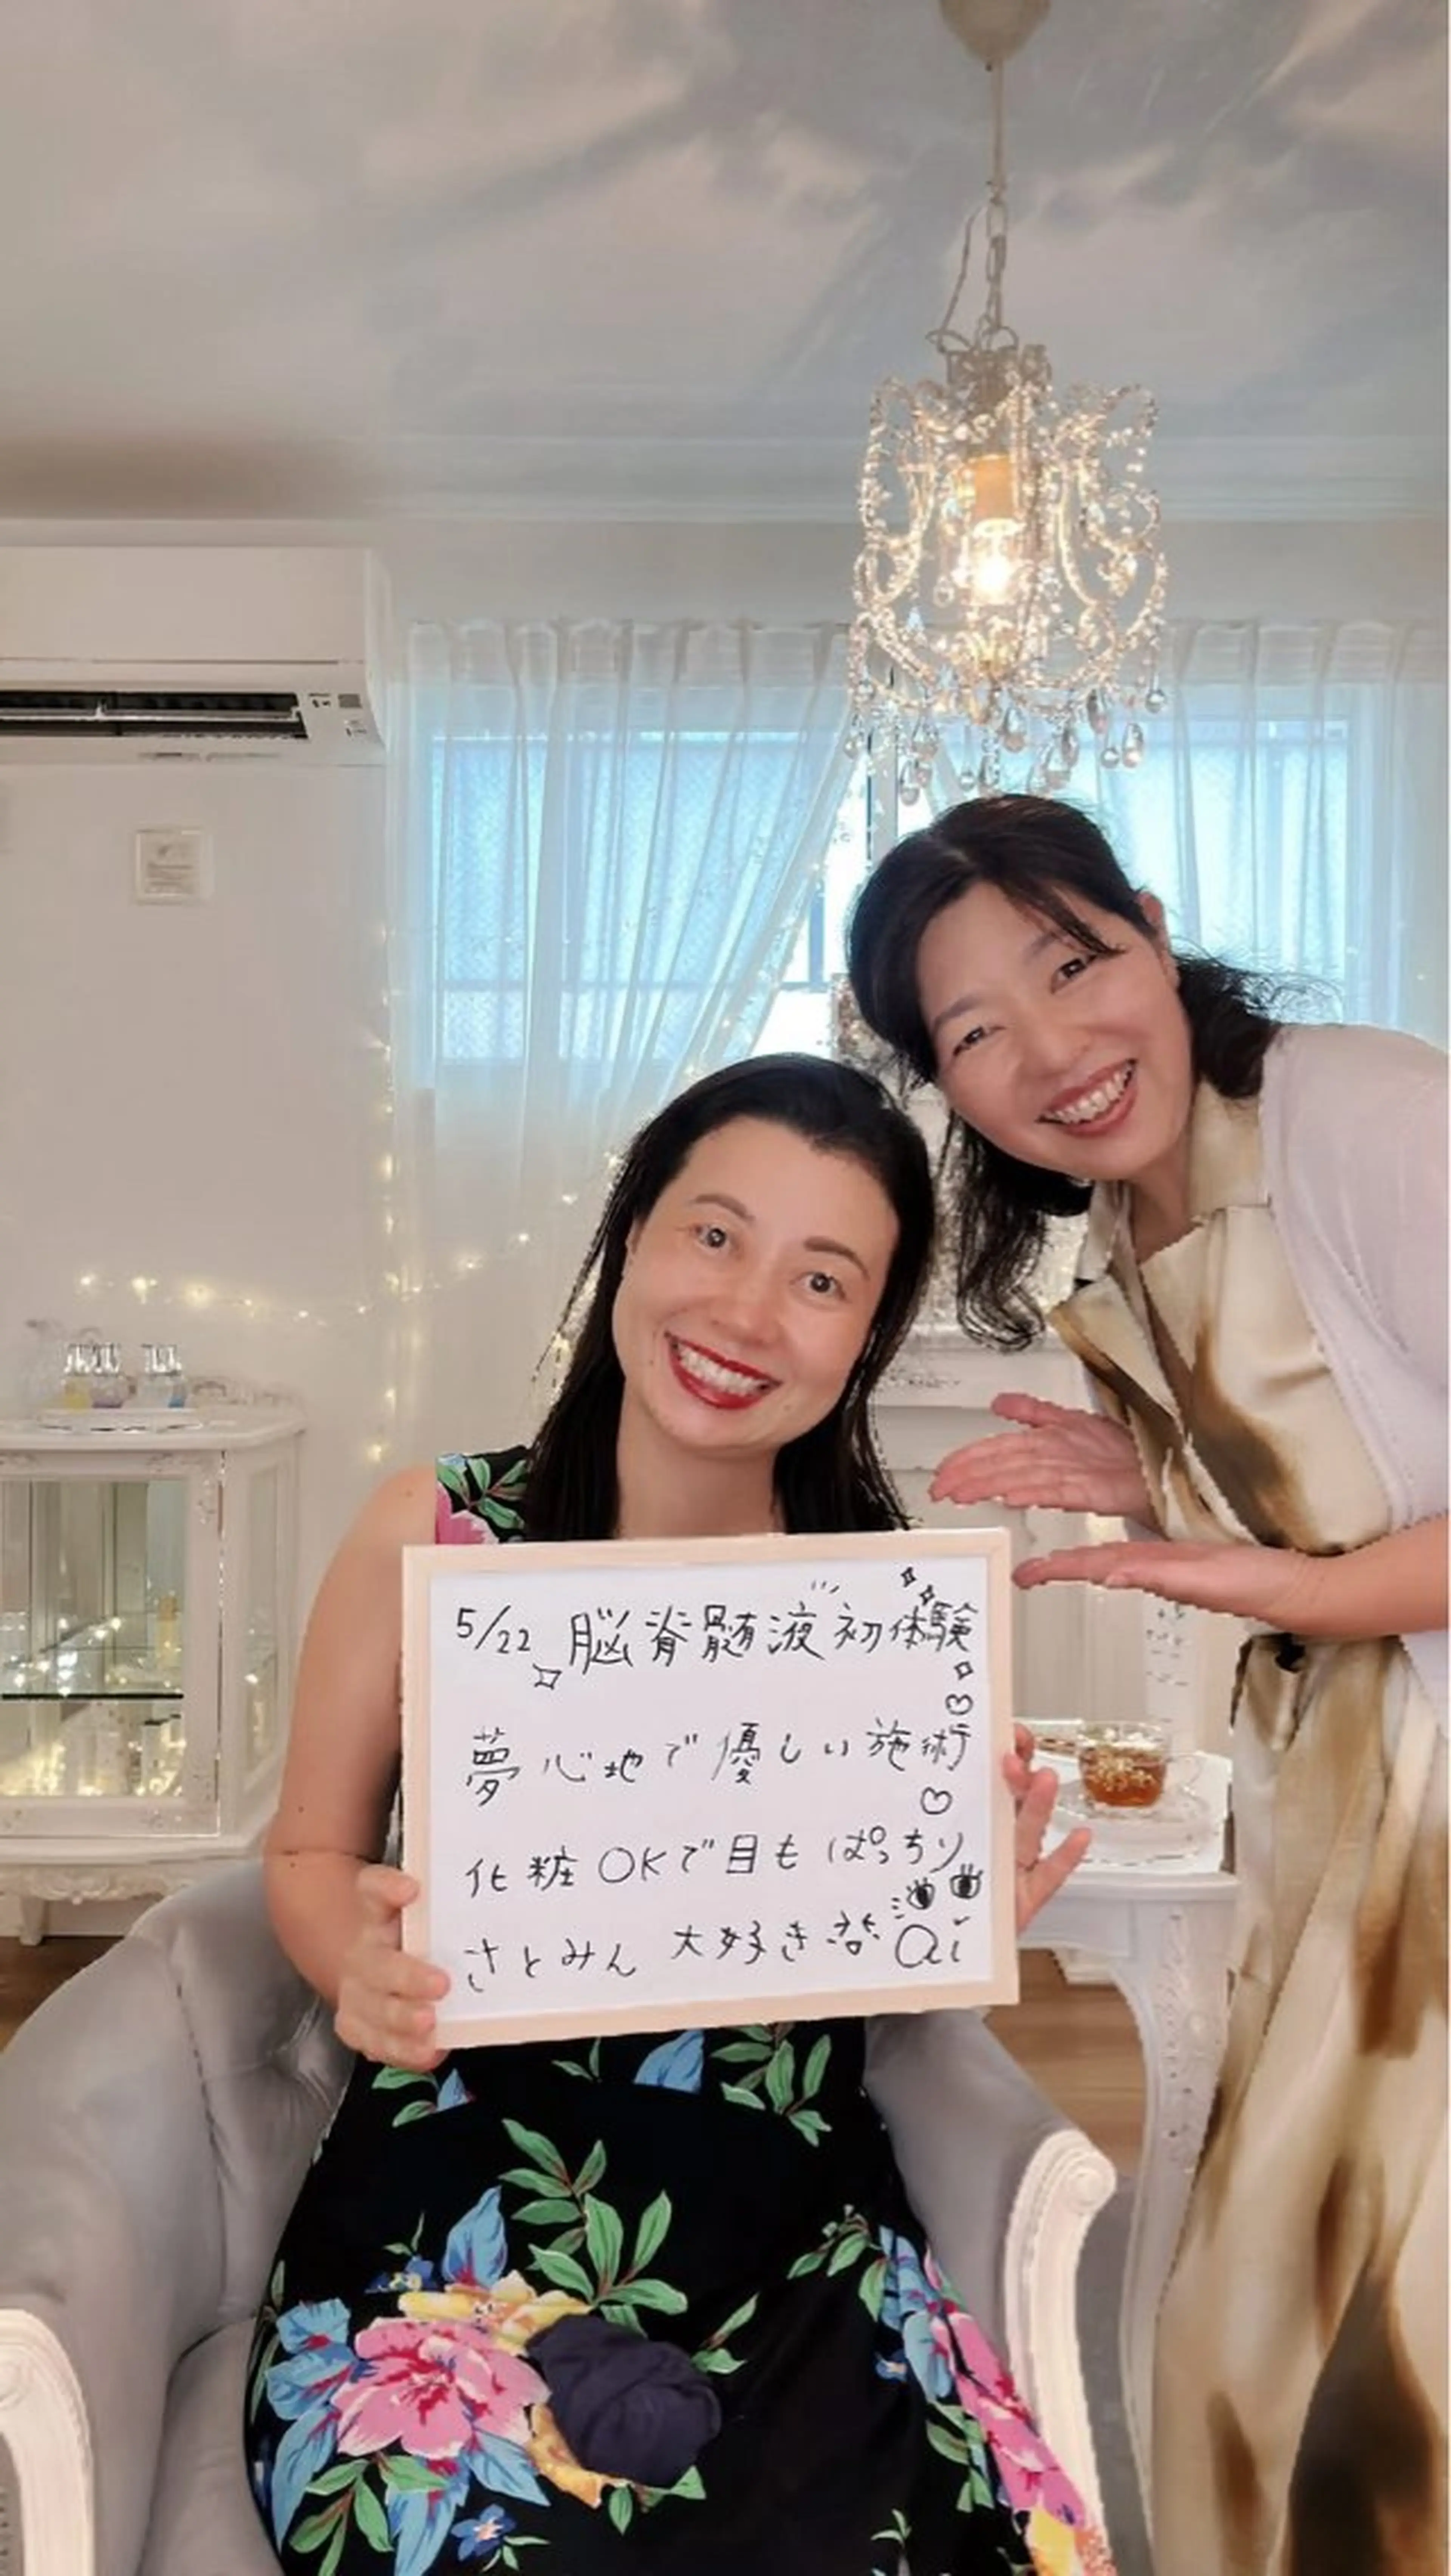 5/22 脳脊髄液初体験
夢心地で優しい施術
化粧OKで目もぱっちり
さとみん 大好き ai